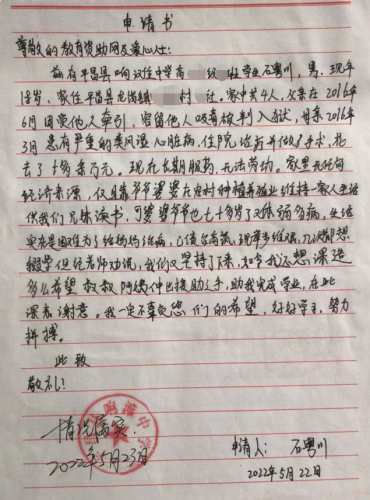 申请书
尊敬的教育资助网及爱心人士:
我有平昌县响滩中学高 级 班学生石粤川,男,现年
18岁,家住平昌县龙岗镇 村 社。家中共4人,父亲在2016年
6月因受他人牵引,容留他人吸毒被判入狱,母亲2016年
3月患有严重的类风湿心脏病,住院治疗并做了手术,花
去了十多余万元。现在长期服药,无法劳动。家里无任何
经济来源,仅靠爷爷婆婆在农村种植养殖业维持一家人生活
供我们兄妹读书,可婆婆爷爷也七十多岁了又体弱多病,生活
实在是困难为了给妈妈治病,已债台高筑,现举步维艰,几次都想
辍学但经老师劝说,我们又坚持了下来,如今我还想深造
多么希望叔叔阿姨伸出援助之手,助我完成学业,在此
深表谢意。我一定不辜负您们的希望,好好学习,努力
拼搏。
此致
敬礼!
情况属实
2022年5月23日
申请人:石粤川
2022年5月22日